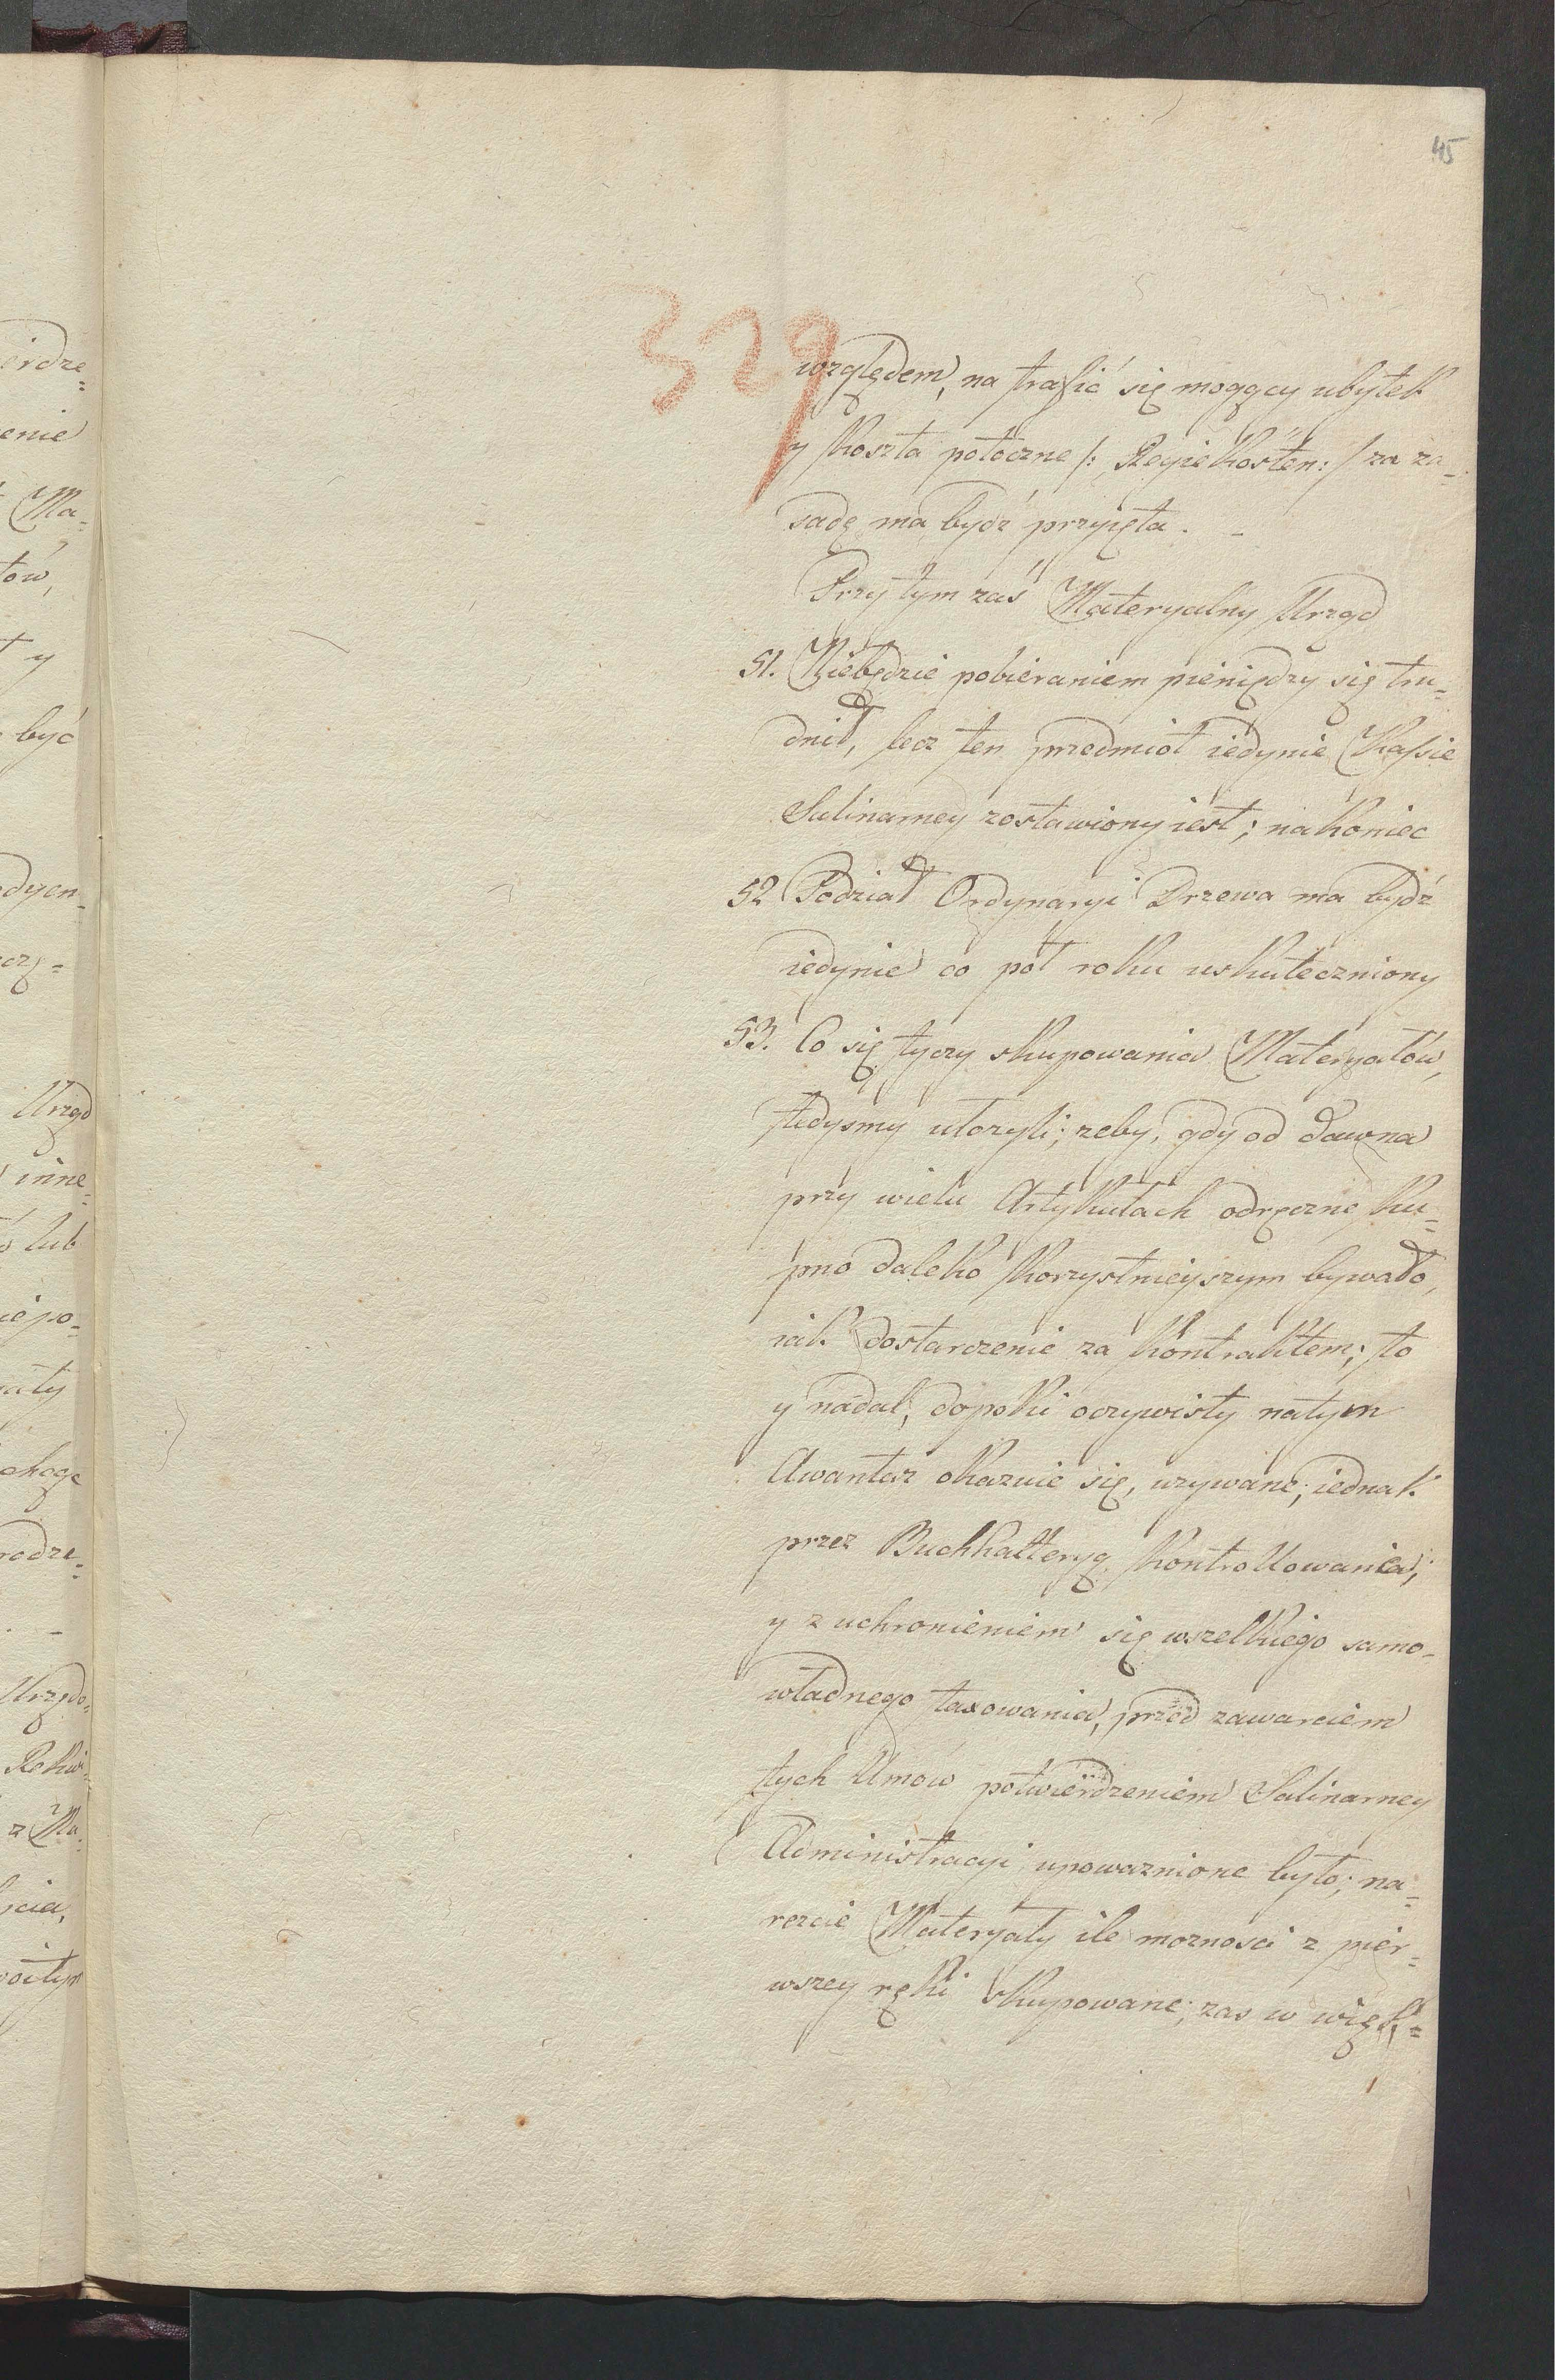 45
329
względem, na trafić się mogący ubytek
y koszta potoczne /: Regiekosten: / za za-
sadę ma bydź przyięta. -
Przytym zaś Materyalny Urząd
51. Niebędzie pobieraniem pieniędzy się tru-
dnił, lecz ten przedmiot iedynie Kassie
Salinarney zostawiony iest; nakoniec
52 Podział Ordynaryi Drzewa ma bydź
iedynie co poł roku uskuteczniony
53. Co się tyczy skupowania Materyałów,
tedysmy utozyli; zeby, gdy od dawna
przy wielu Artykułach odręczne ku-
pno daleko korzystnieyszym bywało,
iak dostarczenie za kontraktem; to
y nadal, dopoki oczywisty natym
Awantaz okazuie się, uzywane; iednak
przez Buchhalteryą kontrollowania;
y z uchronieniem się wszelkiego samo-
władnego taxowania, przed zawarciem
tych Umow potwierdzeniem Salinarney
Administracyi upowaznione było; na-
reszcie Materyały ile moznosci z pier-
wszey ręki skupowane; zas w więk-
erdze-
enie
Ma-
tów,
y
być
dycn-
czę-
Urząd
inne-
lub
iepo-
aty
rodze-
Urzędo-
z Ma-